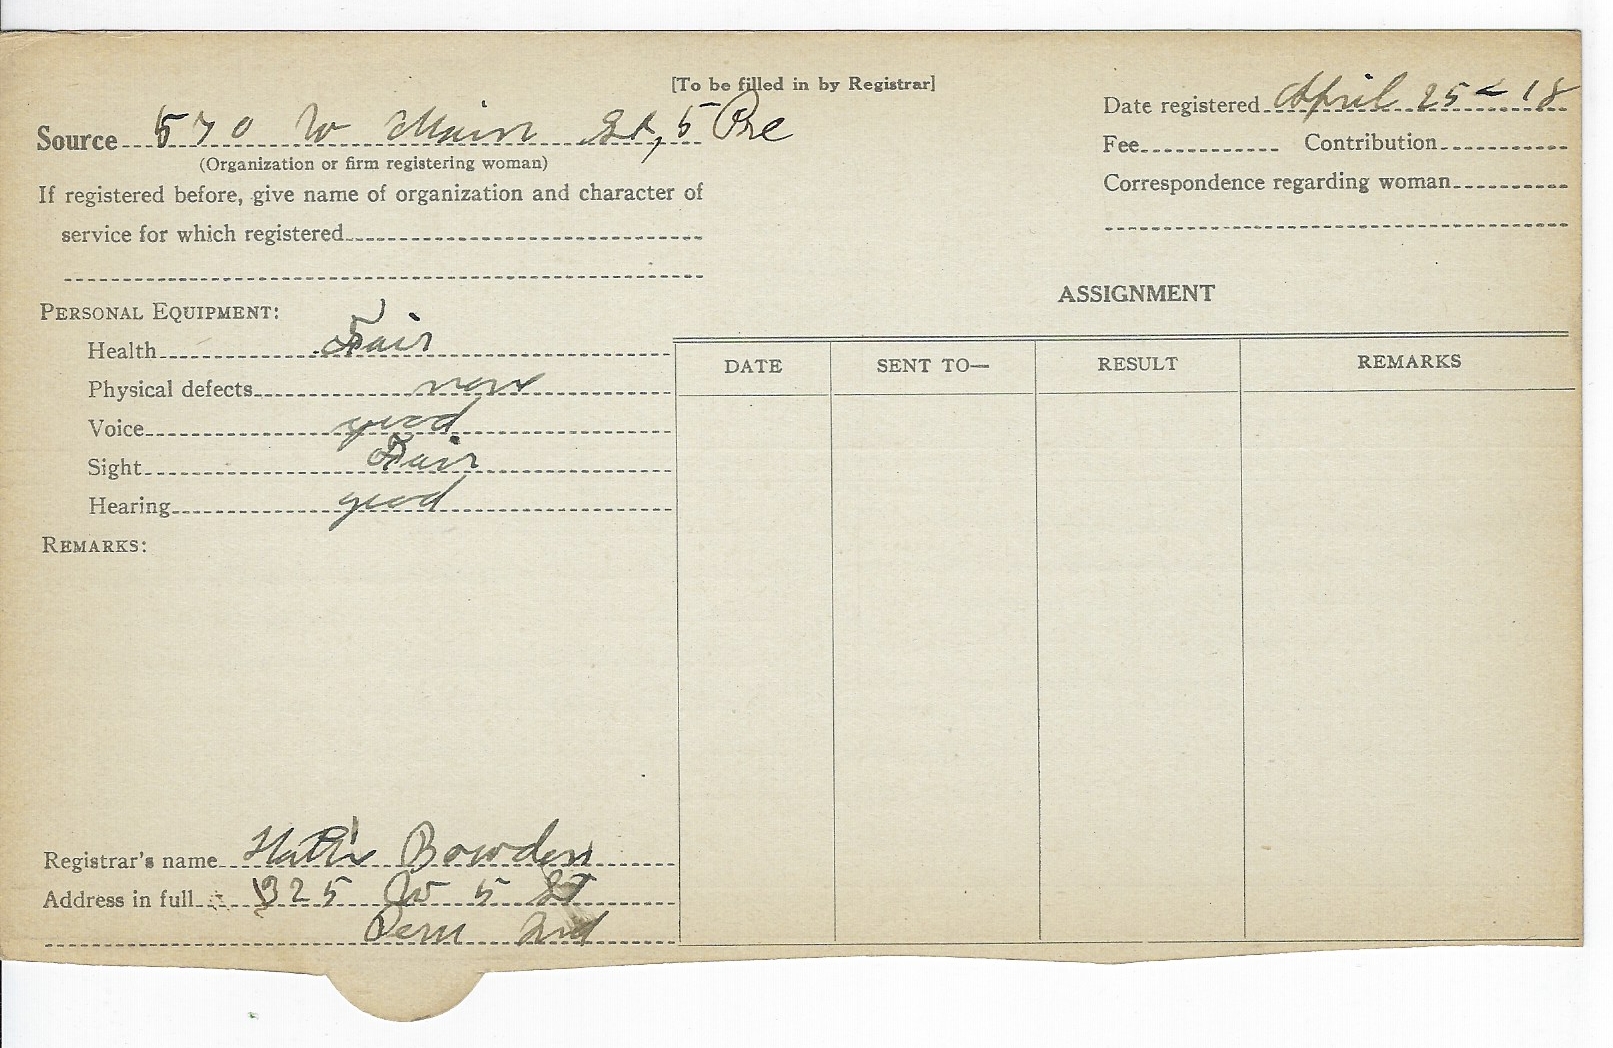 [To be filled in by Registrar]
Date registered April 25 - 18
Source 570 W Main St, 5 Pre
(Organization or firm registering woman)
Fee Contribution
If registered before, give name of organization and character of
service for which registered
Correspondence regarding woman
PERSONAL EQUIPMENT:
Health Fair
Physical defects none
Voice good
Sight Fair
Hearing good
REMARKS:
ASSIGNMENT
DATE SENT TO— RESULT REMARKS
Registrar's name Hattie Bowden
Address in full 325 W 5 St
Peru Ind